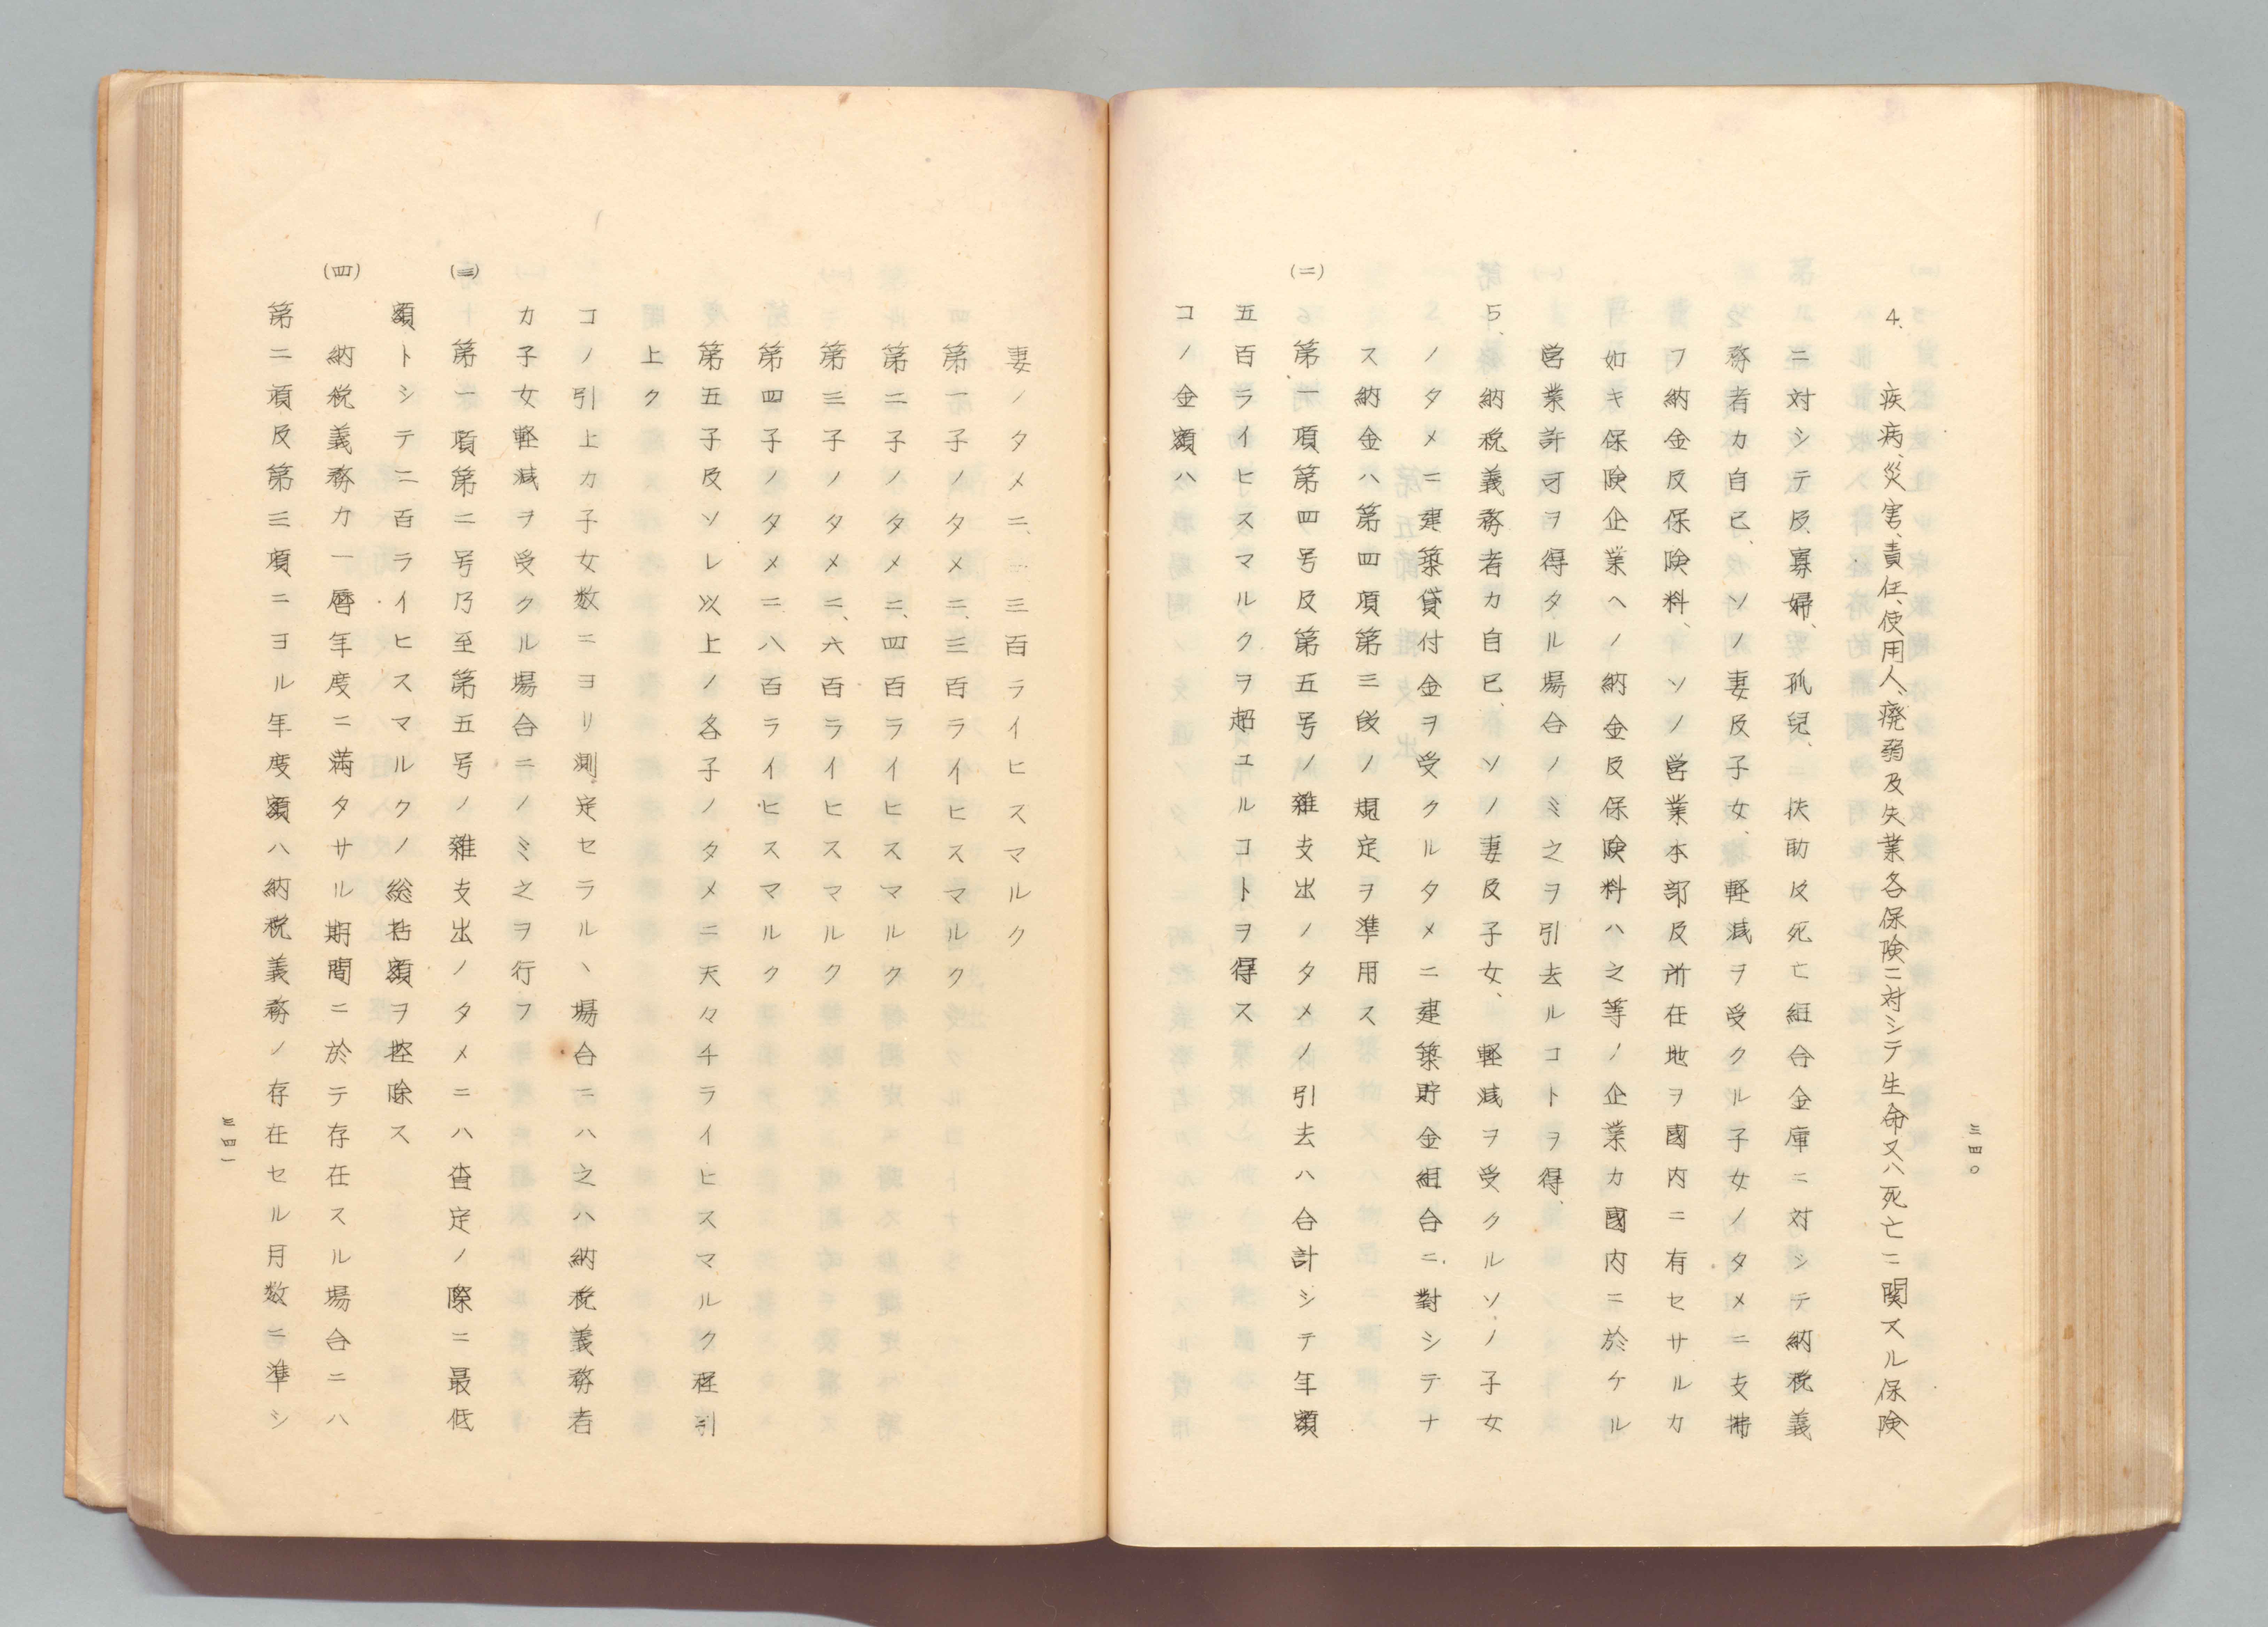 三四〇
4、疾病、災害、責任、使用人、廃弱及失業各保険ニ対シテ生命又ハ死亡ニ関スル保険
ニ対シテ及寡婦、孤兒、扶助及死亡組合金庫ニ対シテ納税義
務者カ自己、ソノ妻及子女、軽減ヲ受クル子女ノタメニ支拂
フ納金及保険料、ソノ営業本部及所在地ヲ國内ニ有セサルカ
如キ保険企業ヘノ納金及保険料ハ之等ノ企業カ國内ニ於ケル
営業許可ヲ得タル場合ノミ之ヲ引去ルコトヲ得、
5、納税義務者カ自己、ソノ妻及子女、軽減ヲ受クルソノ子女
ノタメニ建築貸付金ヲ受クルタメニ建築貯金組合ニ對シテナ
ス納金ハ第四項第三段ノ規定ヲ準用ス
(二)第一項第四号及第五号ノ雑支出ノタメノ引去ハ合計シテ年額
五百ライヒスマルクヲ超ユルコトヲ得ス
コノ金額ハ
妻ノタメニ、三百ライヒスマルク
第一子ノタメニ、三百ライヒスマルク
第二子ノタメニ、四百ライヒスマルク
第三子ノタメニ、六百ライヒスマルク
第四子ノタメニ八百ライヒスマルク
第五子及ソレ以上ノ各子ノタメニ夭々千ライヒスマルク程引
上ク
コノ引上カ子女数ニヨリ測定セラルヽ場合ニハ之ハ納税義務者
カ子女軽減ヲ受クル場合ニノミ之ヲ行フ
(三)第一項第二号乃至第五号ノ雑支出ノタメニハ査定ノ際ニ最低
額トシテ二百ライヒスマルクノ総括額ヲ控除ス
(四)納税義務カ一暦年度ニ満タサル期間ニ於テ存在スル場合ニハ
第二項及第三項ニヨル年度額ハ納税義務ノ存在セル月数ニ準シ
三四一